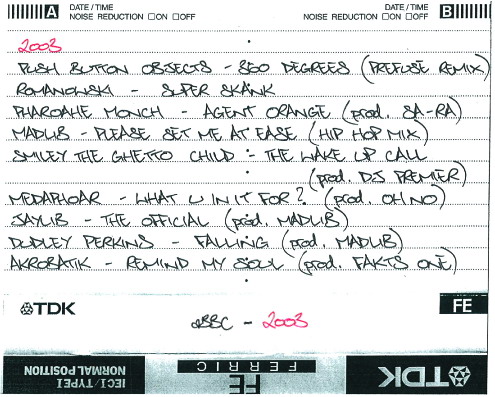 A DATE/TIME
NOISE REDUCTION □ON □OFF
DATE/TIME B
NOISE REDUCTION □ON □OFF
2003
PUSH BUTTON OBJECTS - 360 DEGREES (PREFUSE REMIX)
ROMANOWSKI - SUPER SKANK
PHAROAHE MONCH - AGENT ORANGE (prod. SA-RA)
MADLIB - PLEASE SET ME AT EASE (HIP HOP MIX)
SMILEY THE GHETTO CHILD - THE WAKE UP CALL
(prod. DJ PREMIER)
MEDAPHOAR - WHAT U IN IT FOR? (prod. OH NO)
JAYLIB - THE OFFICIAL (prod. MADLIB)
DUDLEY PERKINS - FALLING (prod. MADLIB)
AKROBATIK - REMIND MY SOUL (prod. FAKTS ONE)
TDK
FE
- 2003
IECI/TYPEI
NORMAL POSITION
FE
FERRIC
TDK